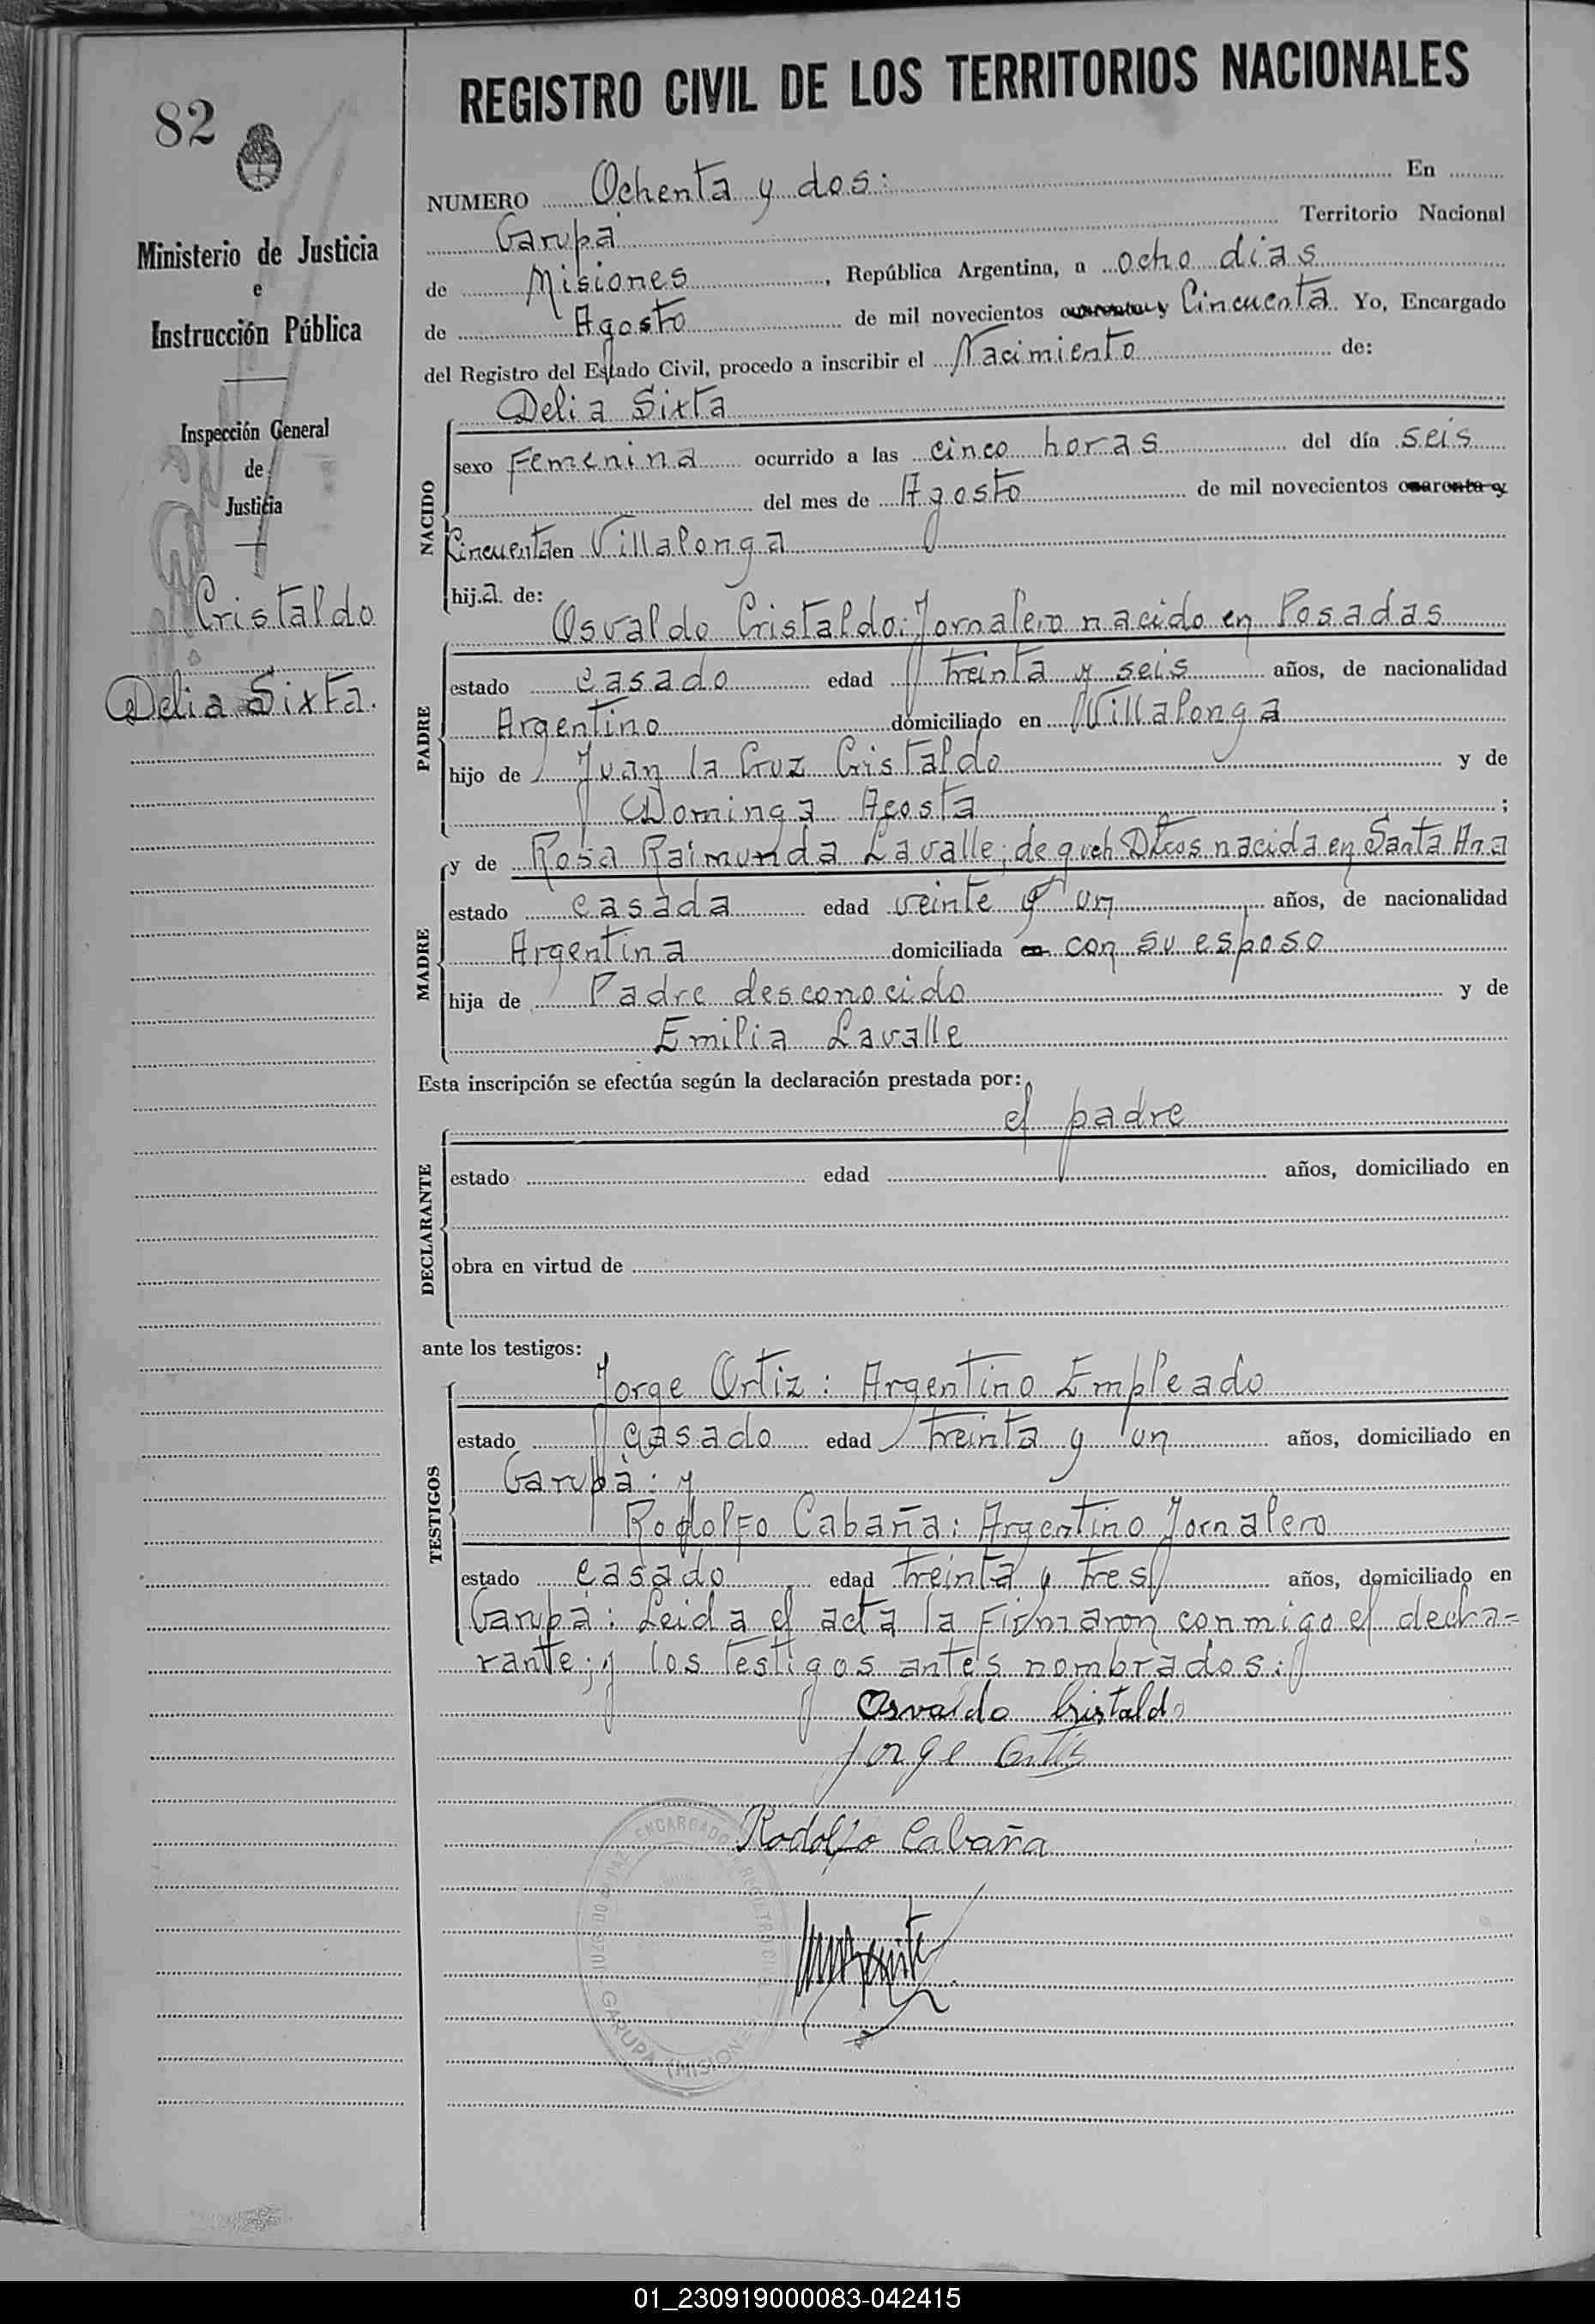 82
Ministerio de Justicia
e
Instrucción Pública
Inspección General
de
Justicia
Cristaldo
Delia Sixta.
REGISTRO CIVIL DE LOS TERRITORIOS NACIONALES
NUMERO Ochenta y dos: En
Garupà Territorio Nacional
de Misiones, República Argentina, a ocho dias
de Agosto de mil novecientos cuarenta y Cincuenta Yo, Encargado
del Registro del Estado Civil, procedo a inscribir el Nacimiento de:
Delia Sixta
NACIDO
sexo Femenina ocurrido a las cinco horas del día seis
del mes de Agosto de mil novecientos cuarenta y
Cincuenta en Villalonga
hija de:
Osvaldo Cristaldo: Jornalero nacido en Posadas
PADRE
estado casado edad treinta y seis años, de nacionalidad
Argentino domiciliado en Villalonga
hijo de Juan la Cruz Cristaldo y de
Dominga Acosta ;
MADRE
y de Rosa Raimunda Lavalle; de queh Dtcos nacida en Santa Ana
estado casada edad veinte y un años, de nacionalidad
Argentina domiciliada en con su esposo
hija de Padre desconocido y de
Emilia Lavalle
Esta inscripción se efectúa según la declaración prestada por:
el padre
DECLARANTE
estado edad años, domiciliado en
obra en virtud de
ante los testigos:
TESTIGOS
Jorge Ortiz: Argentino Empleado
estado casado edad treinta y un años, domiciliado en
Garupà: y
Rodolfo Cabaña: Argentino Jornalero
estado casado edad treinta y tres años, domiciliado en
Garupà: Leida el acta la Firmaron conmigo el decla=
rante; y los testigos antes nombrados:
Osvaldo Cristaldo
Jorge Ortis
Rodolfo Cabaña
JUZGADO DE PAZ ENCARGADO REGISTRO CIVIL
GARUPA (MISIONES)
01_230919000083-042415